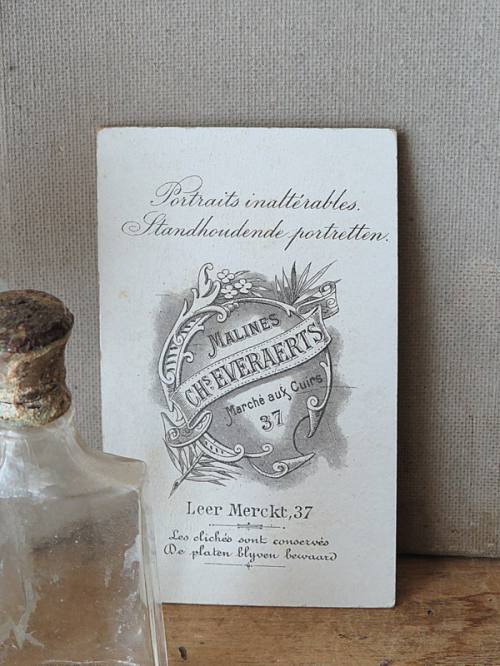 Portraits inaltérables.
Standhoudende portretten.
MALINES
CHS EVERAERTS
Marché aux Cuirs
37
Leer Merckt, 37
Les clichés sont conservés
De platen blyven bewaard